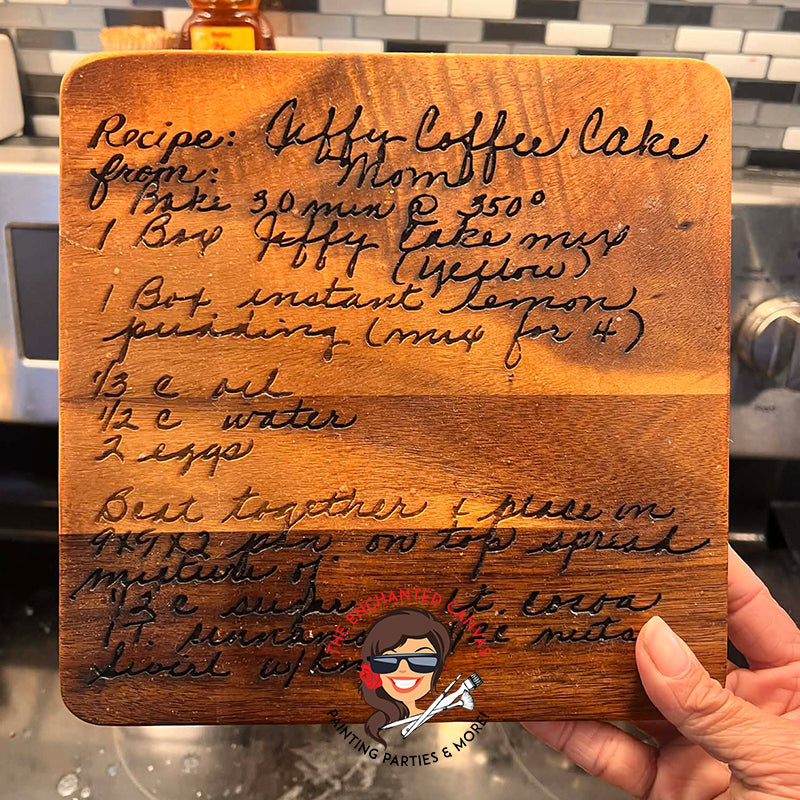 Recipe: Jiffy Coffee Cake
from: Mom
Bake 30 min @ 350°
1 Box Jiffy Cake mix
(yellow)
1 Box instant lemon
pudding (mix for 4)
1/3 c oil
1/2 c water
2 eggs
Beat together & place in
9x9x2 pan on top spread
mixture of
1/2 c sugar 1 t. cocoa
1 T. nuts
Swirl w/
THE ENCHANTED CANVAS
PAINTING PARTIES & MORE!